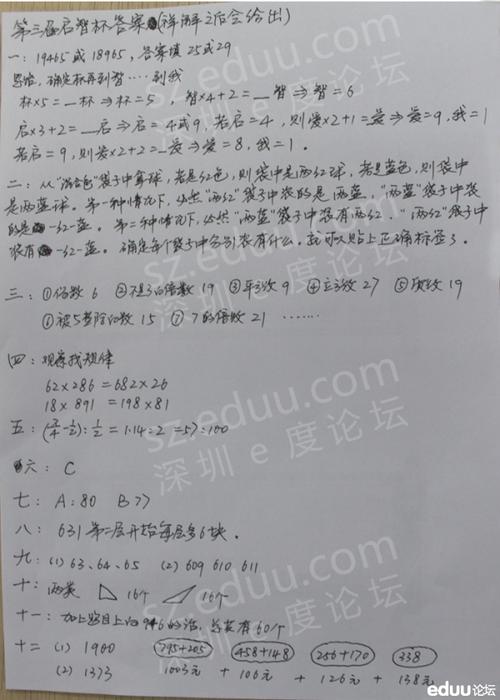 第三届启智杯答案(详解之后会给出)
一：19465或18965，答案填25或29
思路，确定杯再到智……到我
杯×5=_杯⇒杯=5，智×4+2=_智⇒智=6
启×3+2=_启⇒启=4或9，若启=4，则爱×2+1=_爱⇒爱=9，我=1
若启=9，则爱×2+2=_爱⇒爱=8，我=1。
二：从"混合色"袋子中拿球，若是红色，则袋中是两红球，若是蓝色，则袋中
是两蓝球。第一种情况下，必然"两红"袋子中装的是两蓝，"两蓝"袋子中装
的是一红一蓝。第二种情况下，必然"两蓝"袋子中装有两红，"两红"袋子中
装有一红一蓝。确定每个袋子中各引装有什么。就可以贴上正确标签了。
三：①偶数 6 ②不是3的倍数 19 ③平方数 9 ④立方数 27 ⑤质数 19
⑥被5整除的数 15 ⑦7的倍数 21 ……
四：观察找规律
62×286=682×26
18×891=198×81
五： =1.14:2=57:100
六：C
七：A:80 B77
八：631 第二层开始每层多6块.
九：(1)63、64、65 (2)609 610 611
十：两类 16个 16个
十一：加上题目上的 的话，总共有60个
十二 (1) 1900 795+205 458+148 256+170 338
(2) 1373 1003元+106元+126元+138元
sz.eduu.com
深圳e度论坛
sz.eduu.com
深圳e度论坛
sz.eduu.com
深圳e度论坛
eduu论坛